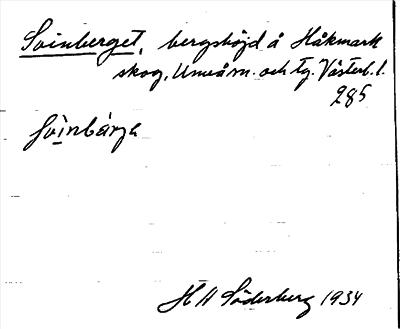 Svinberget, bergshöjd å Håkmark
skog, Umeå sn. och tg. Västerb. l.
285
Svìnbárjə
H H Söderberg 1934